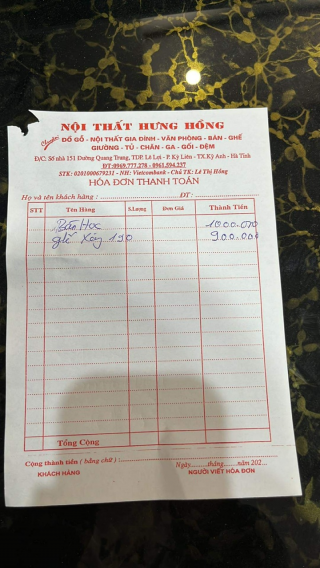 NỘI THẤT HƯNG HỒNG
Chuyên: ĐỒ GỖ - NỘI THẤT GIA ĐÌNH - VĂN PHÒNG - BÀN - GHẾ
GIƯỜNG - TỦ - CHĂN - GA - GỐI - ĐỆM
Đ/C: Số nhà 151 Đường Quang Trung, TDP. Lê Lợi - P. Kỳ Liên - TX.Kỳ Anh - Hà Tĩnh
ĐT:0969.777.278 - 0961.594.227
STK: 0201000679231 - NH: Vietcombank - Chủ TK: Lê Thị Hồng
HÓA ĐƠN THANH TOÁN
Họ và tên khách hàng : ĐT :
STT Tên Hàng S.Lượng Đơn Giá Thành Tiền
Bàn Học 1000.000
ghế xoay 190 900.000
Tổng Cộng
Cộng thành tiền ( bằng chữ ) :
Ngày........tháng.......năm 202...
KHÁCH HÀNG NGƯỜI VIẾT HÓA ĐƠN